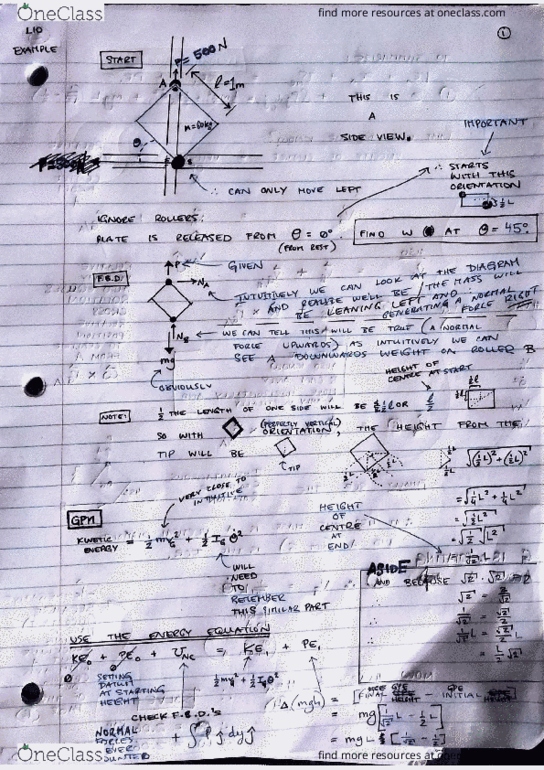 OneClass
find more resources at oneclass.com
L10
EXAMPLE
1
START
P = 500N
A
l = 1m
m = 60kg
θ
THIS IS
A
SIDE VIEW.
IMPORTANT
∴ STARTS
WITH THIS
ORIENTATION
½L
∴ CAN ONLY MOVE LEFT
IGNORE ROLLERS.
PLATE IS RELEASED FROM θ = 0°
(FROM REST)
FIND W AT θ = 45°
F.B.D.
P
GIVEN
NA
INTUITIVELY WE CAN LOOK AT THE DIAGRAM
AND REALIZE WE'LL BE / THE MASS WILL
BE LEANING LEFT AND
GENERATING A NORMAL
FORCE RIGHT
NB
WE CAN TELL THIS WILL BE TRUE (A NORMAL
FORCE UPWARDS) AS INTUITIVELY WE CAN
SEE A DOWNWARDS WEIGHT ON ROLLER B
mg
OBVIOUSLY
HEIGHT OF
CENTRE AT START
NOTE:
½ THE LENGTH OF ONE SIDE WILL BE ½l OR l/2
SO WITH (PERFECTLY VERTICAL) ORIENTATION, THE HEIGHT FROM THE
TIP WILL BE
TIP
√(½L)² + (½L)²
= √¼L² + ¼L²
= √½L²
= √½ √L²
VERY CLOSE TO
INTUITIVE
GPM
KINETIC
ENERGY = ½ mv² + ½ I θ̇²
WILL
NEED
TO
REMEMBER
THIS SIMILAR PART
HEIGHT
OF
CENTRE
AT
END
ASIDE
AND BECAUSE √2 · √2 = 2
√2 = 2/√2
USE THE ENERGY EQUATION
KE₀ + PE₀ + UNC = KE₁ + PE₁
0
0
SETTING
DATUM
AT STARTING
HEIGHT
½mv² + ½Iθ̇²
CHECK F.B.D.'s
NORMAL
FORCES
EVER
COUNTED
+ ∫ P ĵ dy ĵ
Δ(mgh) = [FINAL HEIGHT - INITIAL HEIGHT]
= mg [1/√2 L - ½L]
= mgL [1/√2 - ½]
OneClass
find more resources at oneclass.com